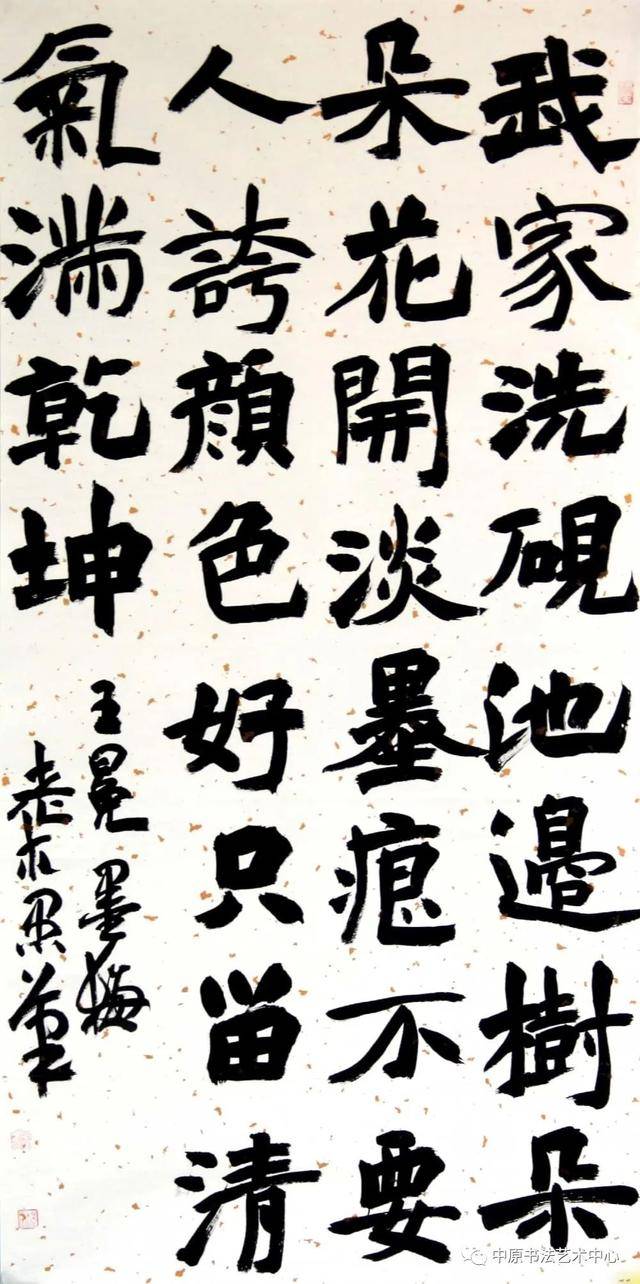 我家洗硯池邊樹朵
朵花開淡墨痕不要
人誇顏色好只留清
氣滿乾坤
王冕墨梅
中原书法艺术中心